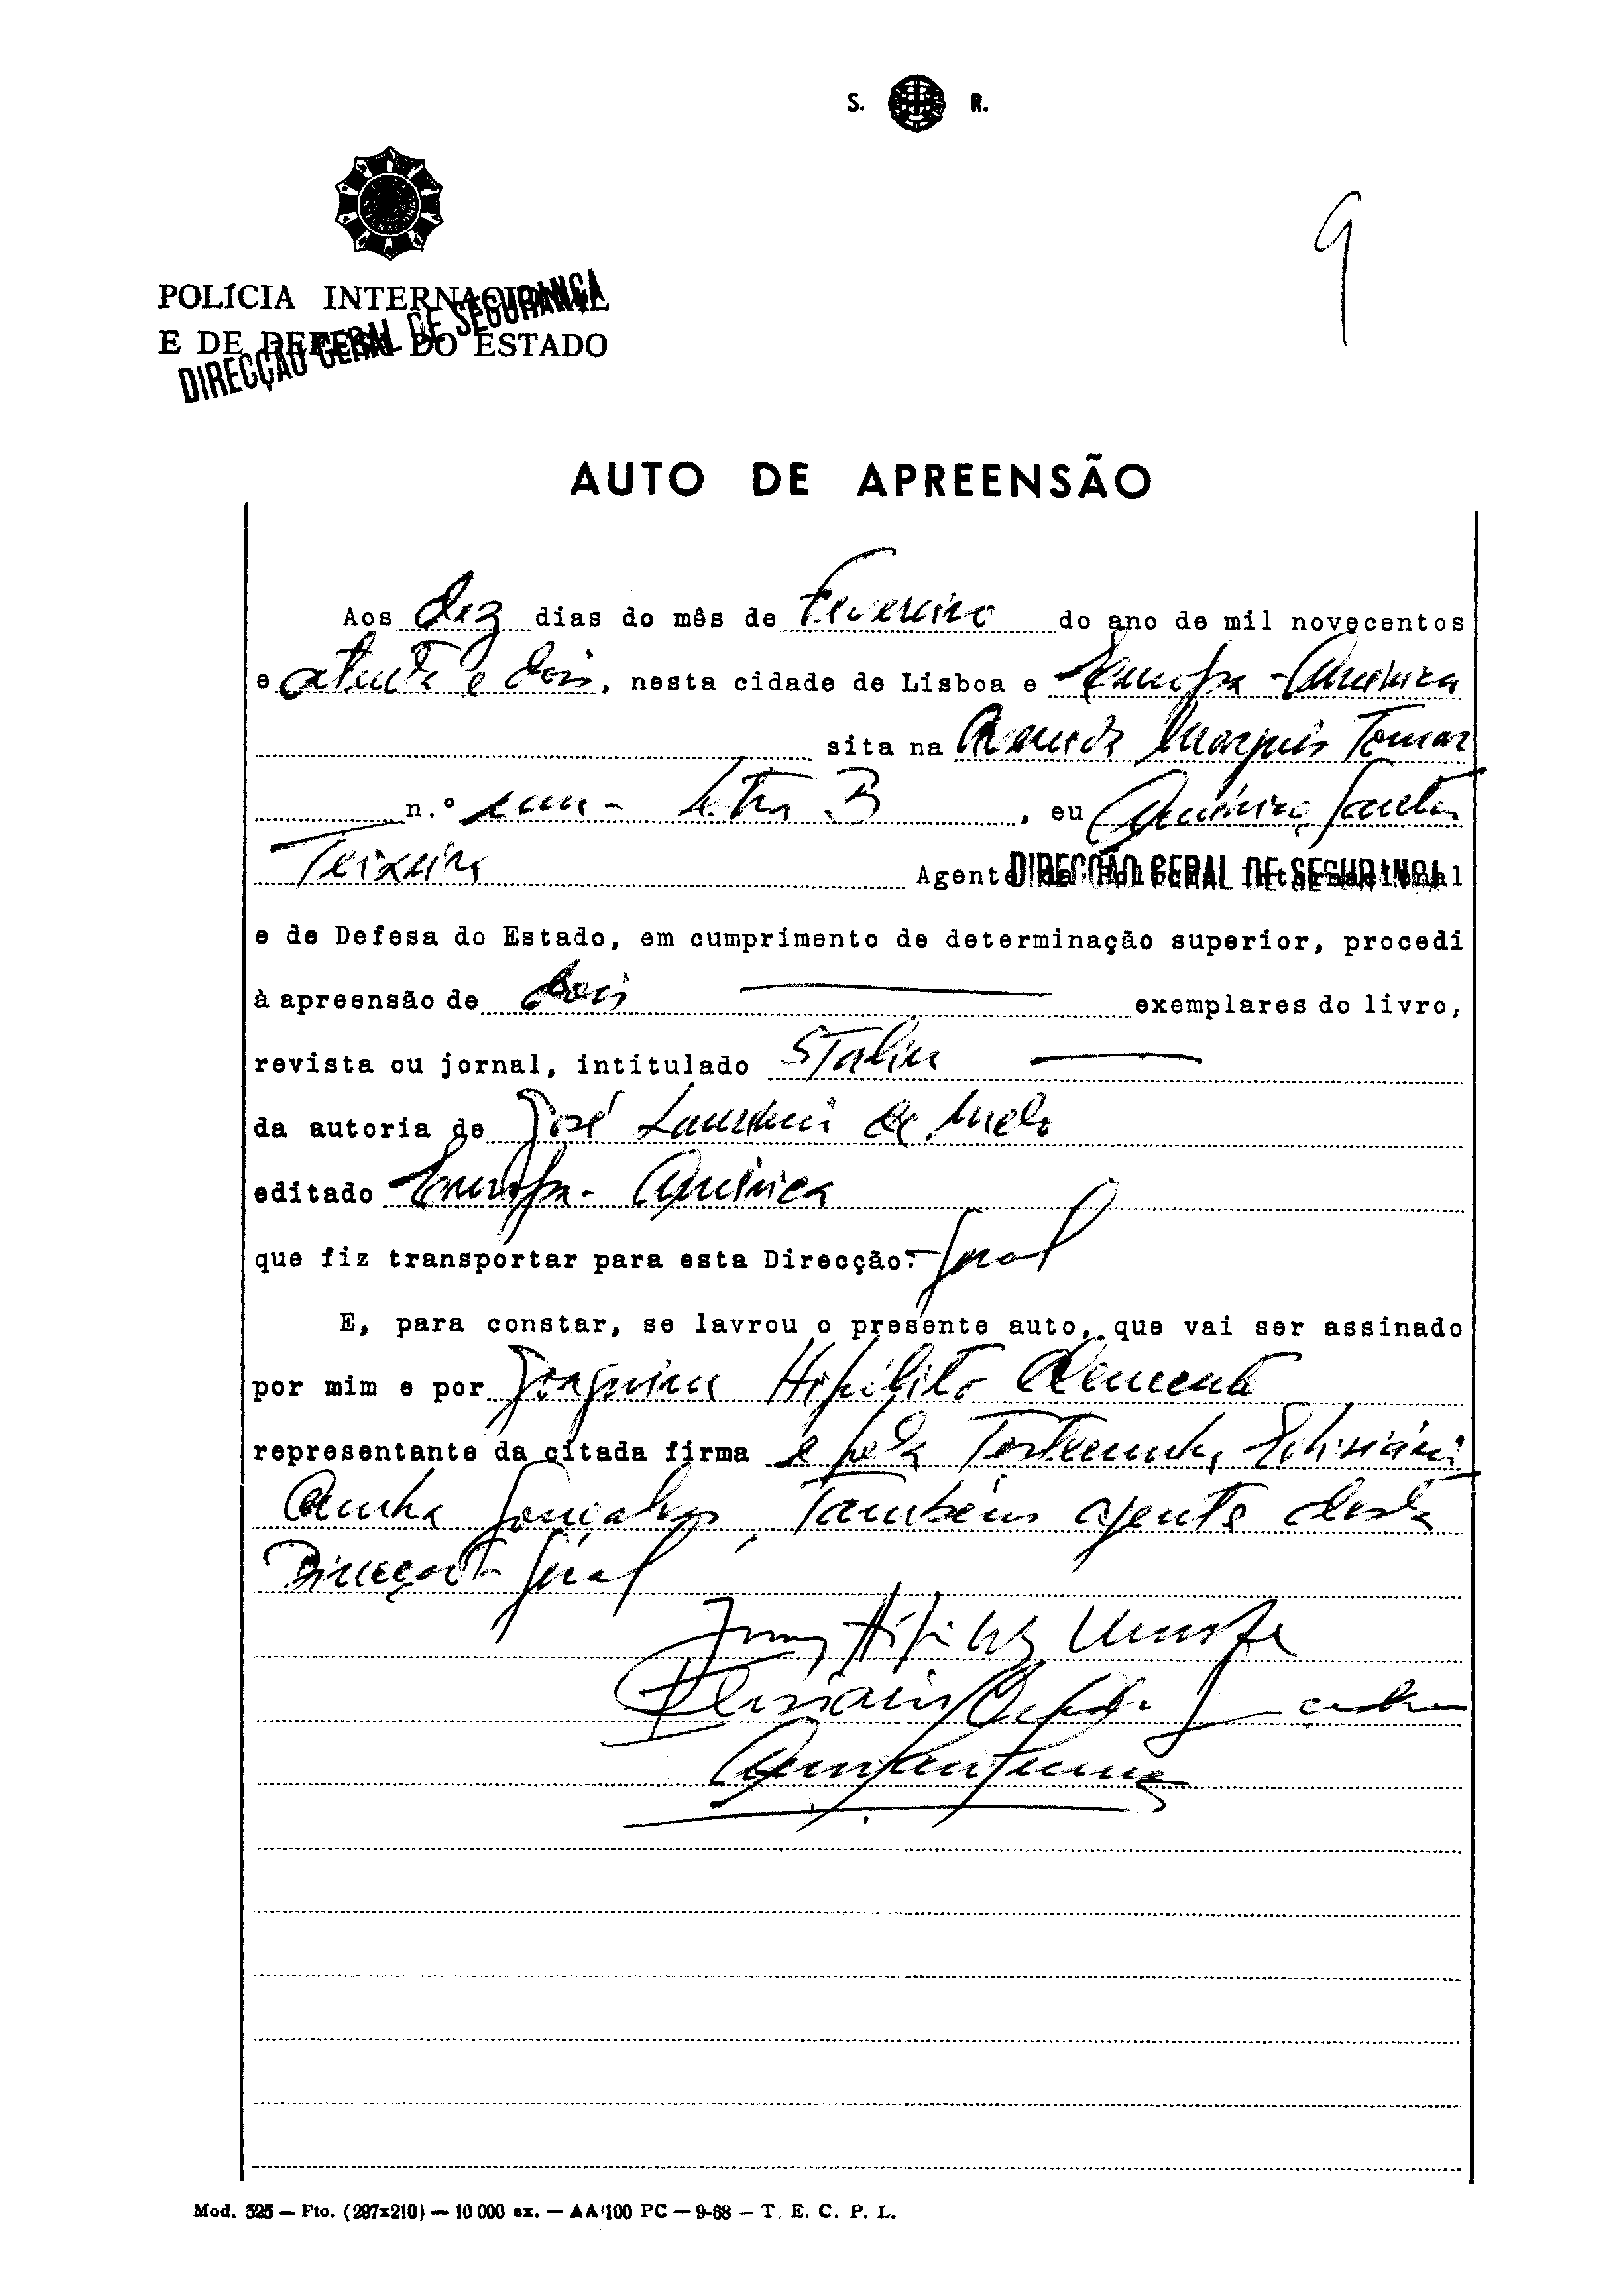 S. R.
9
POLÍCIA INTERNACIONAL
E DE DEFESA DO ESTADO
DIRECÇÃO GERAL DE SEGURANÇA
AUTO DE APREENSÃO
Aos dez dias do mês de Fevereiro do ano de mil novecentos
e setenta e dois, nesta cidade de Lisboa e Europa-América
sita na Avenida Marquês Tomar
n.º um - letra B, eu Américo Santos
Teixeira Agente da Polícia Internacional
DIRECÇÃO GERAL DE SEGURANÇA
e de Defesa do Estado, em cumprimento de determinação superior, procedi
à apreensão de dois exemplares do livro,
revista ou jornal, intitulado Stalin
da autoria de José de Melo
editado Europa-América
que fiz transportar para esta Direcção-Geral
E, para constar, se lavrou o presente auto, que vai ser assinado
por mim e por Joaquim Hipólito Clemente
representante da citada firma e pela Testemunha,
Cunha Gonçalves, também agente desta
Direcção Geral
Mod. 525 — Fto. (297x210) — 10 000 ex. — AA/100 PC — 9-68 — T. E. C. P. L.